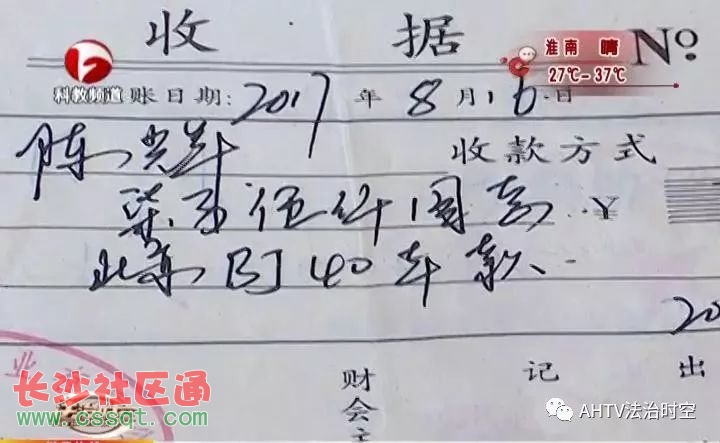 收 据 Nº
淮南 晴
27℃-37℃
科教频道 账日期: 2017 年 8 月 16 日
陈 收款方式
柒万伍仟圆整 ¥
北京BJ40车款
20
业
财 记 出
会
主
长沙社区通
www.cssqt.com
AHTV法治时空